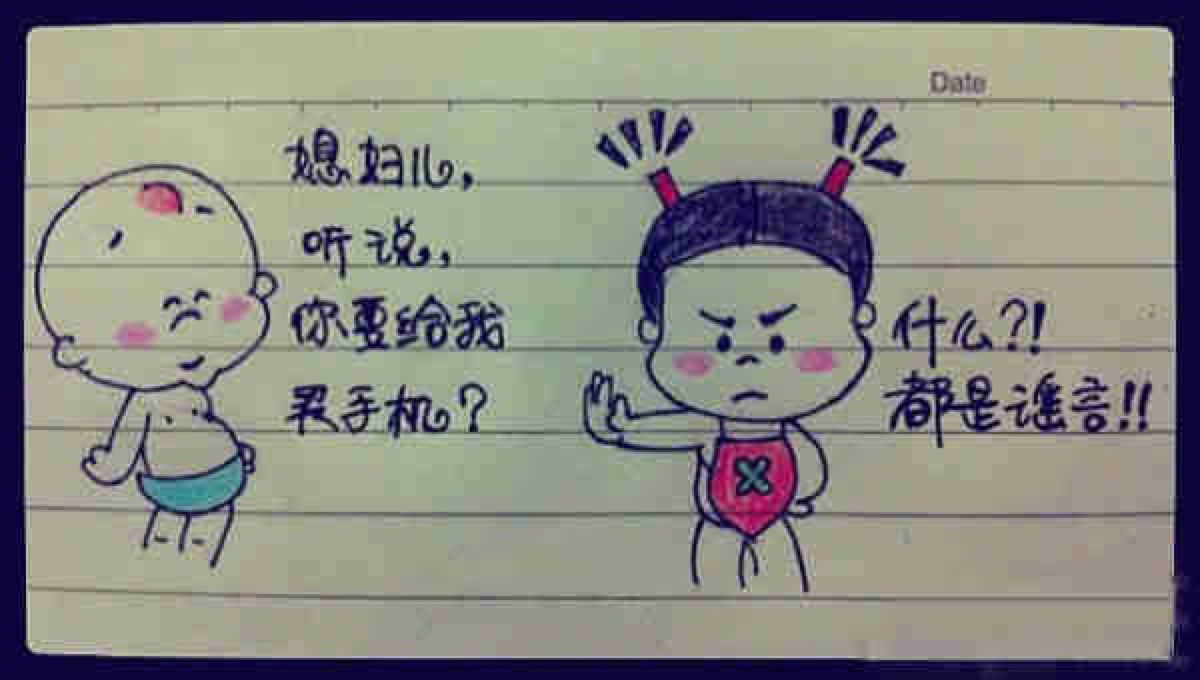 Date
媳妇儿，
听说，
你要给我
买手机？
什么？！
都是谣言！！
X